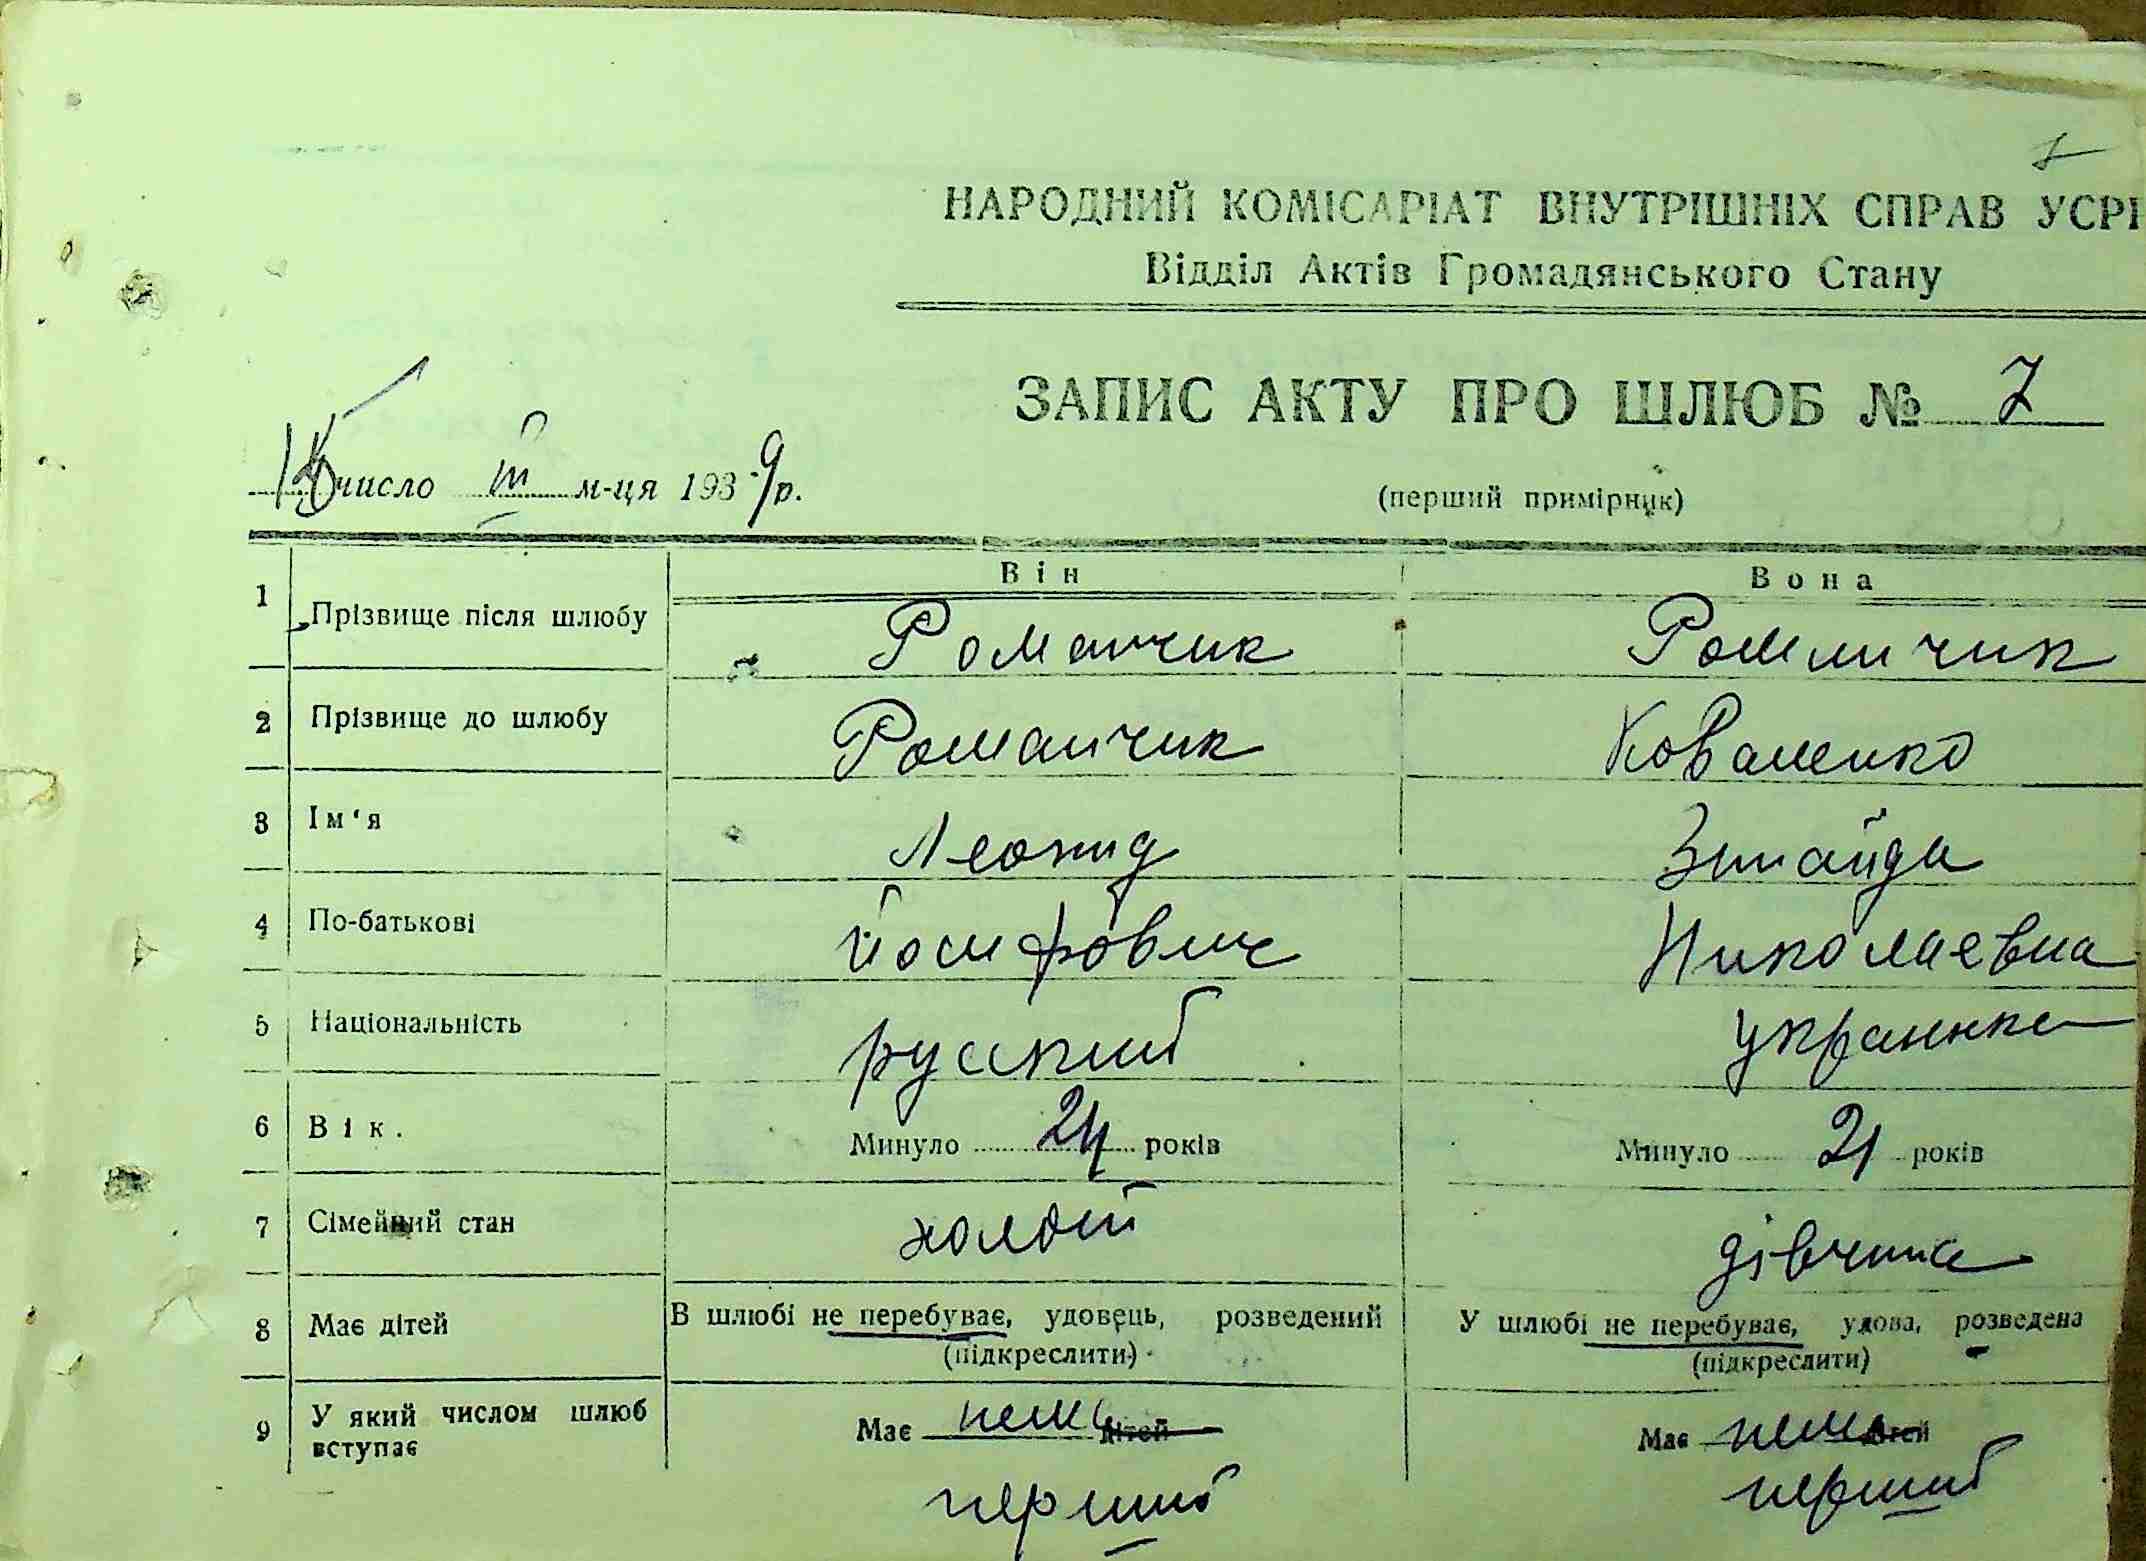 7
НАРОДНИЙ КОМІСАРІАТ ВНУТРІШНІХ СПРАВ УСРР
Відділ Актів Громадянського Стану
ЗАПИС АКТУ ПРО ШЛЮБ № 7
число III м-ця 1939 р.
(перший примірник)
Він Вона
1 Прізвище після шлюбу Романчик Романчик
2 Прізвище до шлюбу Романчик Коваленко
3 Ім'я Леонид Зинаида
4 По-батькові Йосифович Николаевна
5 Національність русский украинка
6 Вік. Минуло 24 років Минуло 21 років
7 Сімейний стан холостий дівчина
8 Має дітей В шлюбі не перебуває, удовець, розведений У шлюбі не перебуває, удова, розведена
(підкреслити) (підкреслити)
9 У який числом шлюб вступає Має нема дітей Має нема дітей
перший перший